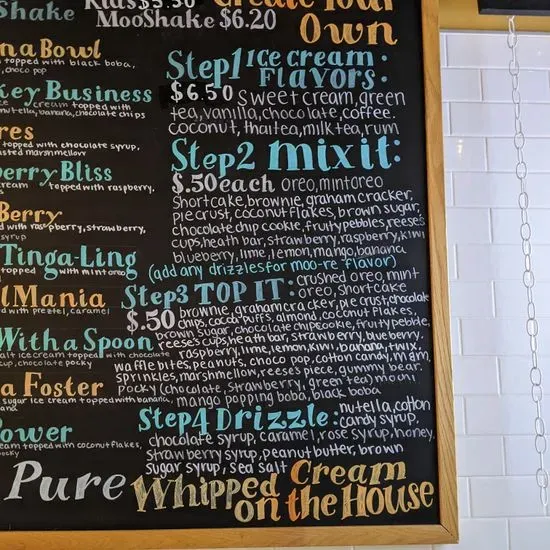 Shake
Kids $5.50
MooShake $6.20
Create Your
Own
n a Bowl
topped with black boba,
, choco pop
key Business
ice cream topped with
nutella, banana, chocolate chips
res
topped with chocolate syrup,
sted marshmellow
berry Bliss
cream topped with raspberry,
Berry
d with raspberry, strawberry,
syrup
Tinga-Ling
topped with mint oreo
lMania
d with preztel, caramel
With a Spoon
alt ice cream topped with chocolate
up, chocolate pocky
a Foster
sugar ice cream topped with banana,
Power
eam topped with coconut flakes,
Pure
Step1 Ice cream
Flavors:
$6.50 sweet cream, green
tea, vanilla, chocolate, coffee.
coconut, thai tea, milk tea, rum
Step2 mix it:
$.50 each oreo, mint oreo
shortcake, brownie, graham cracker,
pie crust, coconut flakes, brown sugar,
chocolate chip cookie, fruity pebbles, reese's
cups, heath bar, strawberry, raspberry, kiwi
blueberry, lime, lemon, mango, banana
(add any drizzles for moo-re flavor)
Step3 TOP IT: crushed oreo, mint
oreo, shortcake
$.50 brownie, graham cracker, pie crust, chocolate
chips, cocoa puffs, almond, coconut flakes,
brown sugar, chocolate chip cookie, fruity pebble,
reese's cups, heath bar, strawberry, blueberry,
raspberry, lime, lemon, kiwi, banana, twix,
waffle bites, peanuts, choco pop, cotton candy, m&m,
sprinkles, marshmellow, reese's piece, gummy bear.
pocky (chocolate, strawberry, green tea) mochi
mango popping boba, black boba
Step4 Drizzle: nutella, cotton
candy syrup,
chocolate syrup, caramel, rose syrup, honey,
strawberry syrup, peanut butter, brown
sugar syrup, sea salt
Whipped Cream
on the House